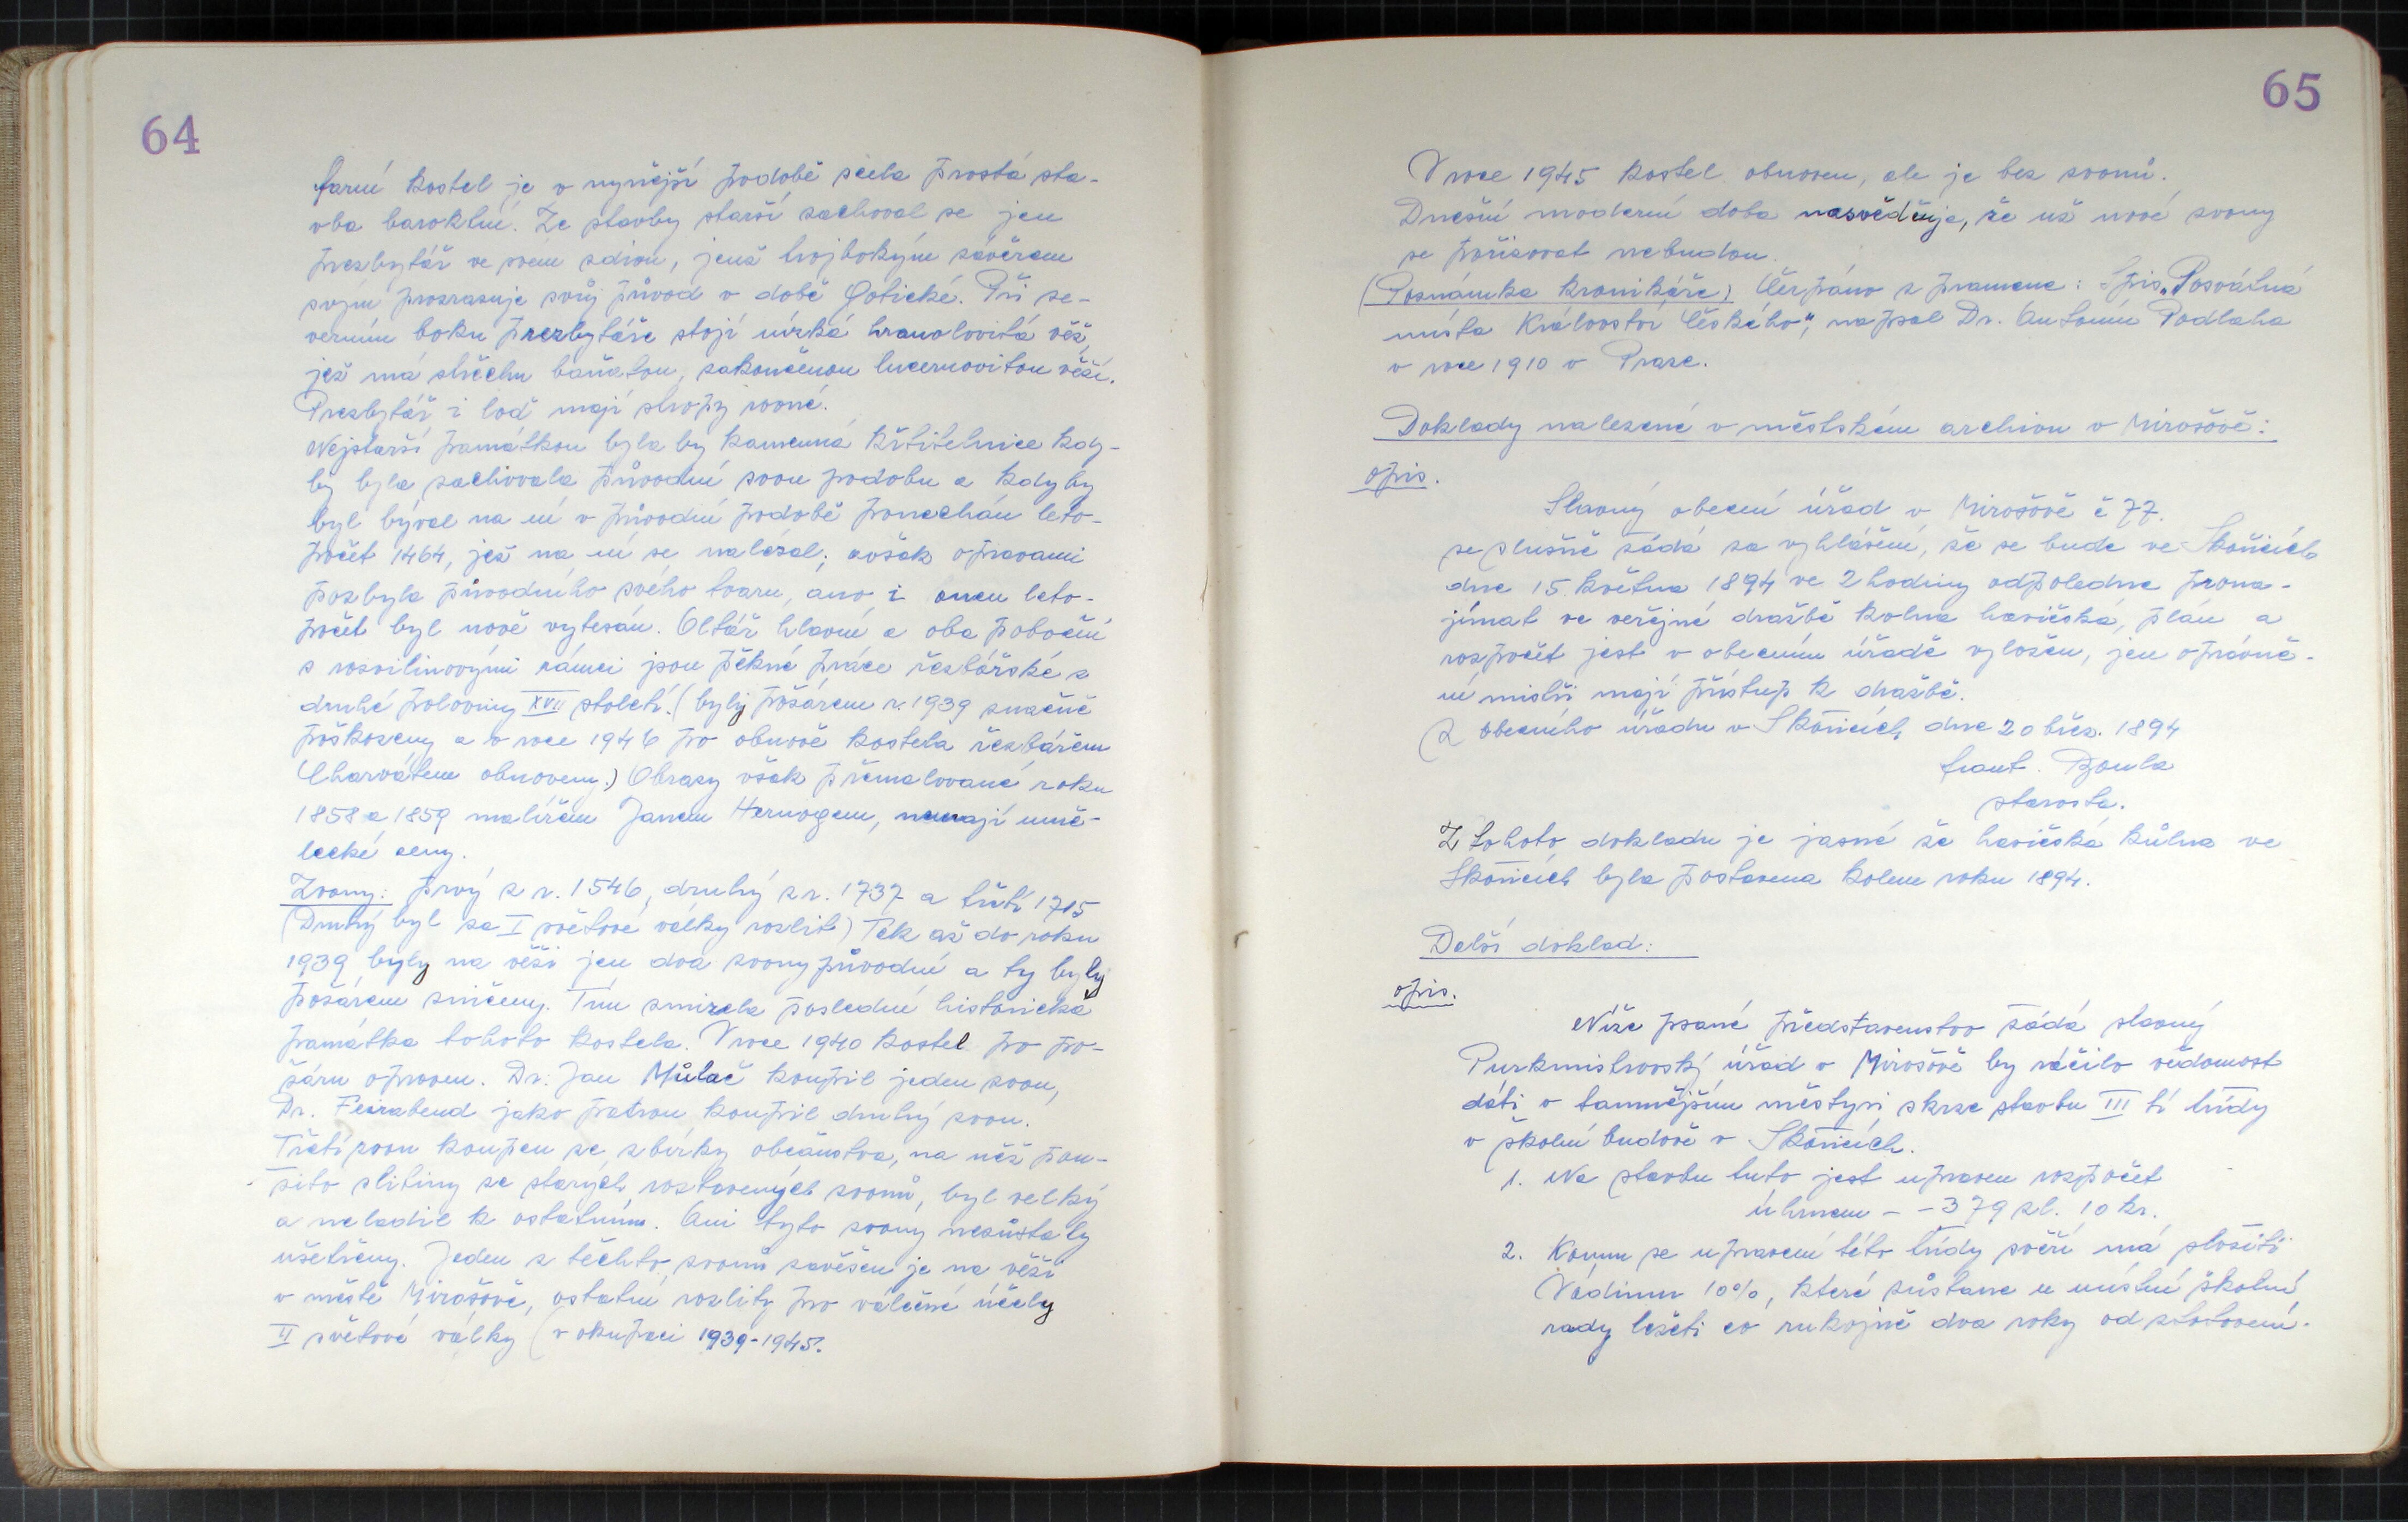 64
farní kostel je v nynější podobě zcela prostá sta-
vba barokní. Ze stavby starší zachoval se jen
presbytář ve svém zdivu, jenž trojbokým závěrem
svým prozrazuje svůj původ v době gotické. Při se-
verním boku presbytáře stojí nízká hranolovitá věž,
jež má střechu baňatou, zakončenou lucernovitou věží.
Presbytář i loď mají stropy rovné.
Nejstarší památkou byla by kamenná křtitelnice kdy-
by byla zachovala původní svou podobu a kdyby
byl býval na ní v původní podobě ponechán leto-
počet 1464, jež na ní se nalézal; avšak opravami
pozbyla původního svého tvaru, ano i onen leto-
počet byl nově vytesán. Oltář hlavní a oba pobočni
s rozvilinovými rámci jsou pěkné práce řezbářské z
druhé poloviny XVII století. (byly požárem r. 1939 značně
poškozeny a v roce 1946 po obnově kostela řezbářem
Charvátem obnoveny.) Obrazy však přemalované roku
1858 a 1859 malířem Janem Hernogem, nemají umě-
lecké ceny.
Zvony: prvý z r. 1546, druhý z r. 1737 a třetí 1715
(Druhý byl za I světové války rozlit) Tak až do roku
1939 byly na věži jen dva zvony původní a ty byly
požárem zničeny. Tím zmizela poslední historická
památka tohoto kostela. V roce 1940 kostel po po-
žáru opraven. Dr. Jan Můlač koupil jeden zvon,
Dr. Feirabend jako patron koupil druhý zvon.
Třetí zvon koupen ze sbírky občanstva, na něž pou-
žito slitiny ze starých roztavených zvonů, byl velký
a neladil k ostatním. Ani tyto zvony nezůstaly
ušetřeny. Jeden z těchto zvonů zavěšen je na věži
v městě Mirošově, ostatní rozlity pro válečné účely
II světové války (v okupaci 1939-1945.
65
V roce 1945 kostel obnoven, ale je bez zvonů.
Dnešní moderní doba nasvědčuje, že už nové zvony
se pořizovat nebudou.
(Poznámka kronikáře) Čerpáno z pramene: Spis „Posvátná
místa Království Českého", napsal Dr. Antonín Podlaha
v roce 1910 v Praze.
Doklady nalezené v městském archivu v Mirošově:
opis.
Slavný obecní úřad v Mirošově č 77.
se slušně žádá za vyhlášení, že se bude ve Skořicích
dne 15. května 1894 ve 2 hodiny odpoledne prona-
jímat ve veřejné dražbě kolna hasičská, plán a
rozpočet jest v obecním úřadě vyložen, jen oprávně-
ní mistři mají přístup k dražbě.
Z obecního úřadu v Skořicích dne 20 břez. 1894
frant. Boula
starosta.
Z tohoto dokladu je jasné že hasičská kůlna ve
Skořicích byla postavena kolem roku 1894.
Další doklad:
opis.
Níže psané představenstvo žádá slavný
Purkmistrovský úřad v Mirošově by ráčilo vědomost
dáti v tamnějším městysi skrze stavbu III tí třídy
v školní budově v Skořicích.
1. Na stavbu tuto jest upraven rozpočet
úhrnem - - 379 zl. 10 kr.
2. Komu se upravení této třídy svěří má složiti
Vádium 10%, které zůstane u místní školní
rady ležeti co rukojmě dva roky od zhotovení.